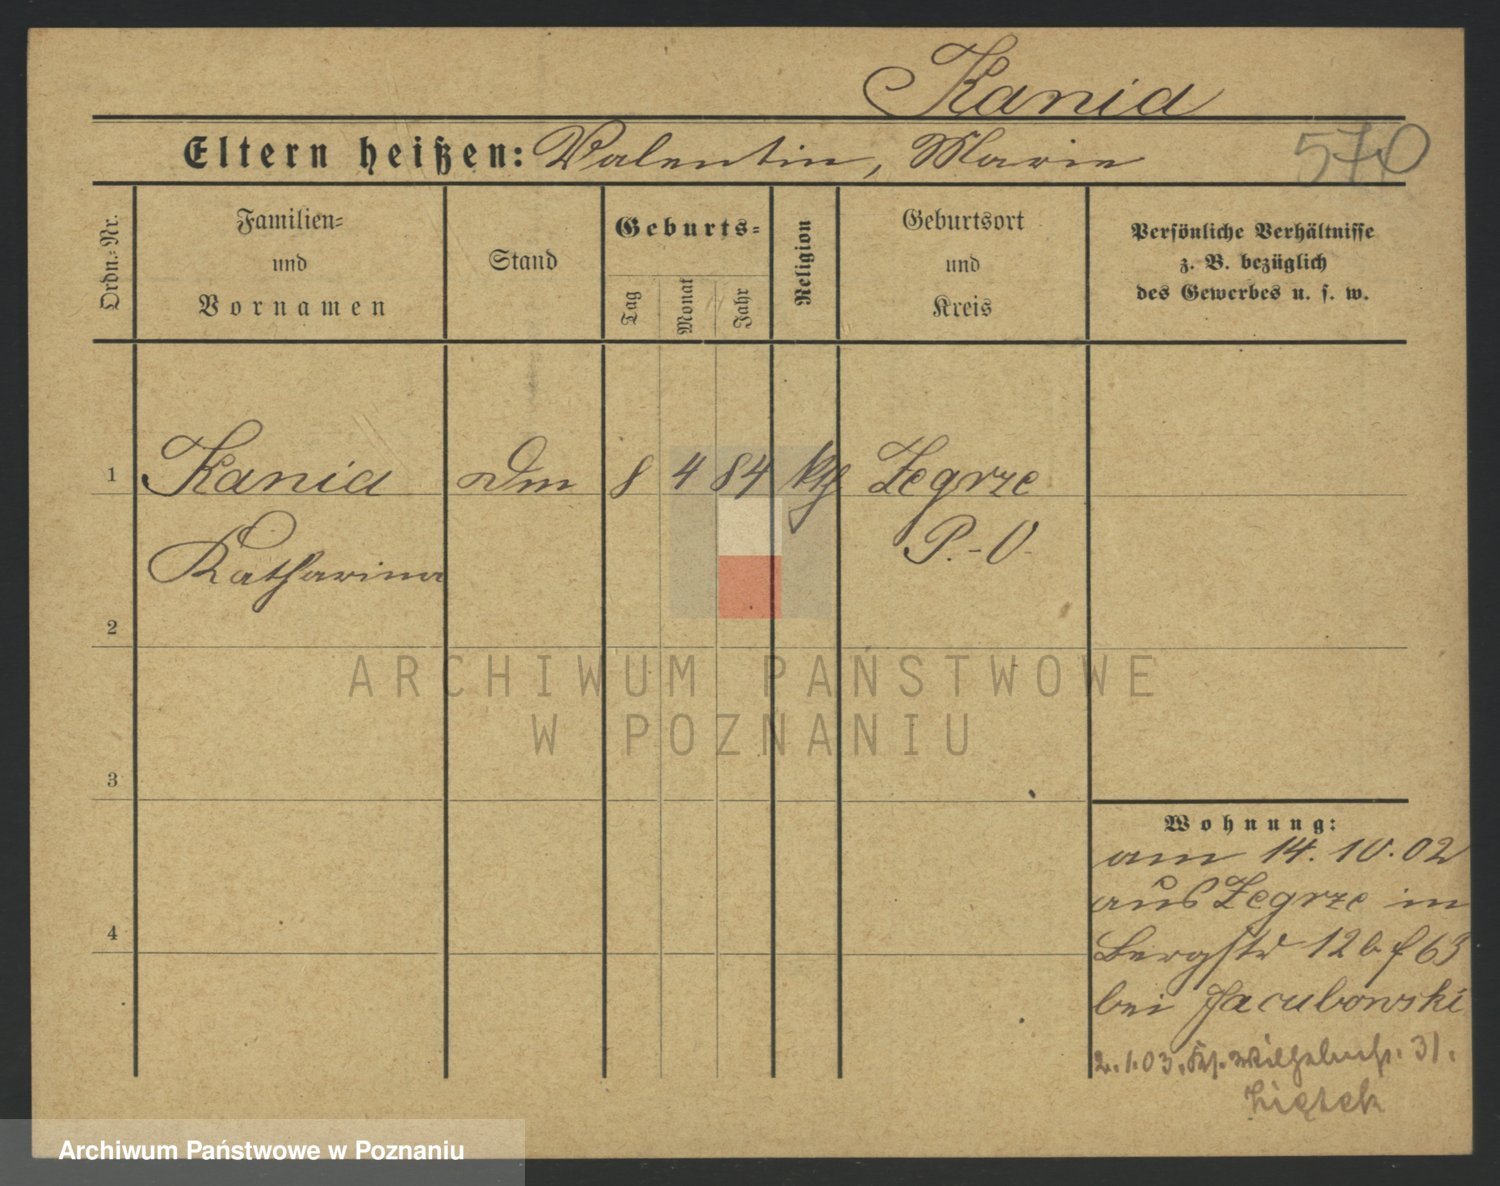 Kania
Eltern heißen: Valentin, Marie
570
Ordn.=Nr.
Familien=
und
Vornamen
Stand
Geburts=
Tag
Monat
Jahr
Religion
Geburtsort
und
Kreis
Persönliche Verhältnisse
z. B. bezüglich
des Gewerbes u. s. w.
1 Kania Dm 8 4 84 kth Zegrze
Katharina P.-O.
2
3
4
Wohnung:
am 14.10.02
aus Zegrze in
Bergstr 12 b f 63
bei Jacubowski
2.1.03. 31.
ARCHIWUM PAŃSTWOWE
W POZNANIU
Archiwum Państwowe w Poznaniu